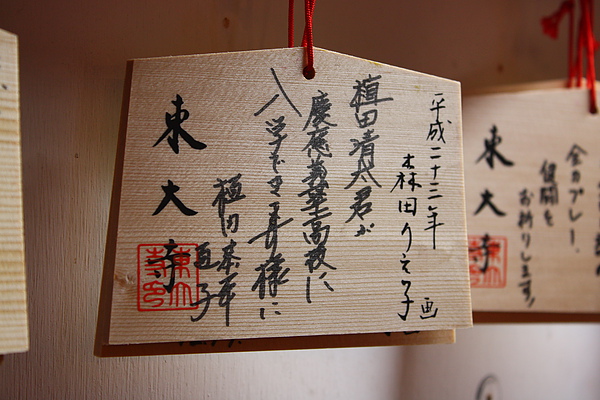 平成二十三年
森田りえ子 画
植田清 君が
慶應義塾高校に
入学できます様に
植田
直子
東大寺
全力プレー、
健闘を
お祈りします!
東大寺